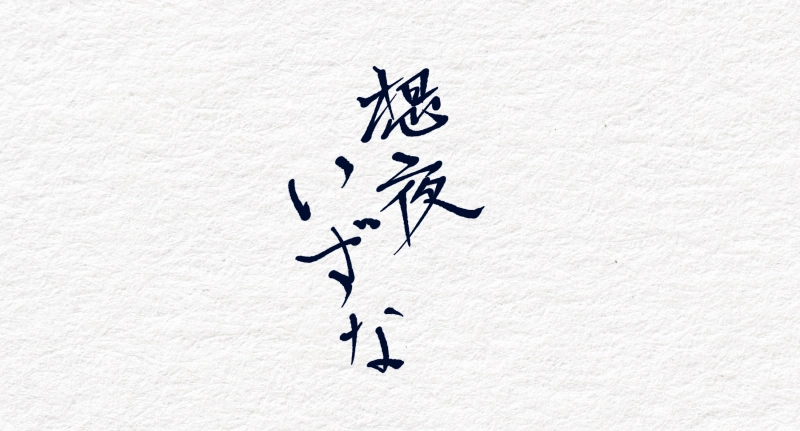 想夜
いずな